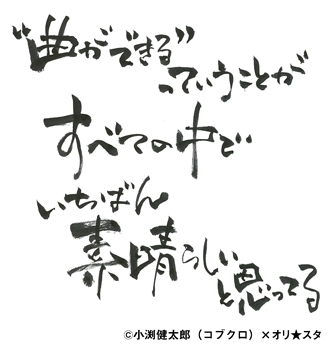 “曲ができる”
っていうことが
すべての中で
いちばん
素晴らしい
と思ってる
©小渕健太郎（コブクロ）×オリ★スタ